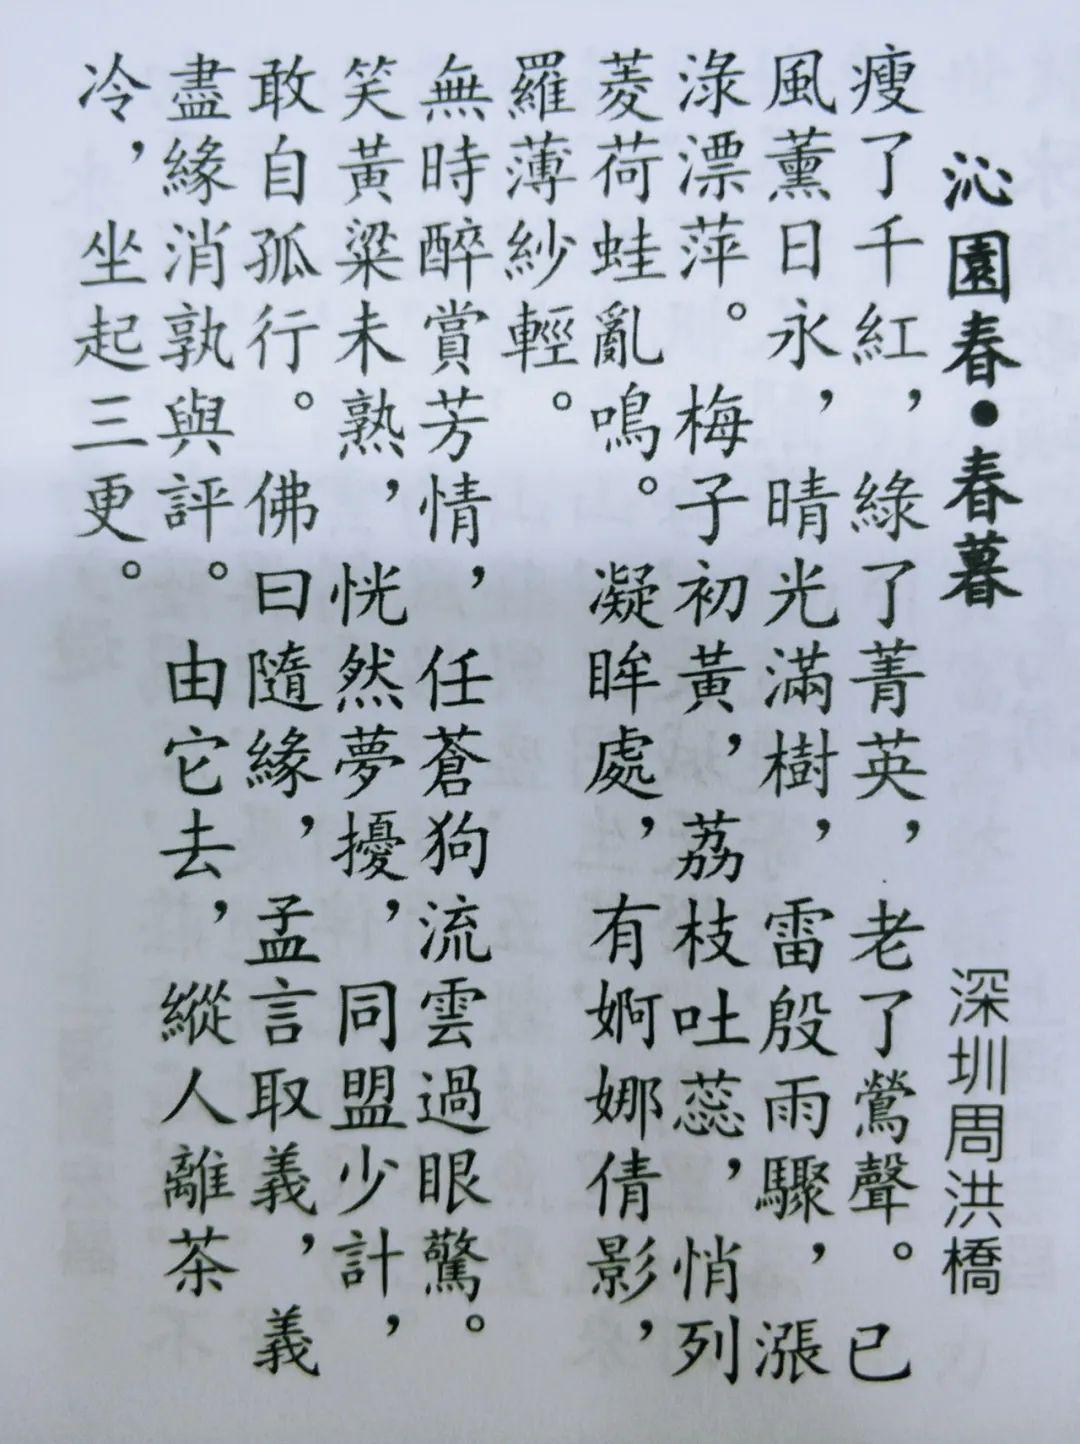 沁園春•春暮
深圳周洪橋
瘦了千紅，綠了菁英，老了鶯聲。已
風薰日永，晴光滿樹，雷殷雨驟，漲
淥漂萍。梅子初黃，荔枝吐蕊，悄列
菱荷蛙亂鳴。凝眸處，有婀娜倩影，
羅薄紗輕。
無時醉賞芳情，任蒼狗流雲過眼驚。
笑黃粱未熟，恍然夢擾，同盟少計，
敢自孤行。佛曰隨緣，孟言取義，義
盡緣消孰與評。由它去，縱人離茶
冷，坐起三更。